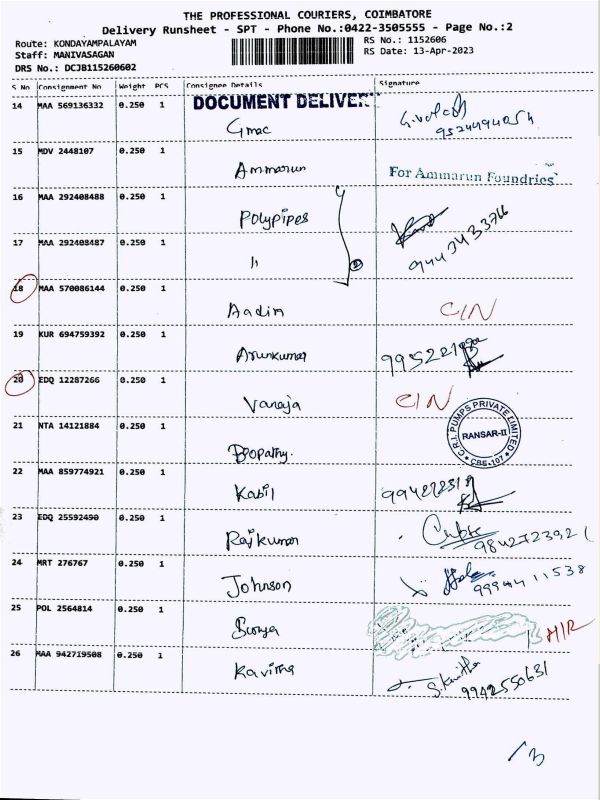 THE PROFESSIONAL COURIERS, COIMBATORE
Delivery Runsheet - SPT - Phone No.:0422-3505555 - Page No.:2
Route: KONDAYAMPALAYAM RS No.: 1152606
Staff: MANIVASAGAN RS Date: 13-Apr-2023
DRS No.: DCJB115260602
S No Consignment No Weight PCS Consignee Details Signature
14 MAA 569136332 0.250 1 DOCUMENT DELIVER
Gmac 9524494054
15 MDV 2448107 0.250 1
Ammarun For Ammarun Foundries
16 MAA 292408488 0.250 1
Polypipes 9443433766
17 MAA 292408487 0.250 1
11
18 MAA 570086144 0.250 1
Aadim C/N
19 KUR 694759392 0.250 1
Arunkumar
20 EDQ 12287266 0.250 1
Vanaja C/N
21 NTA 14121884 0.250 1 C.R.I. PUMPS PRIVATE LIMITED
Boopathy. RANSAR-II
CBE-107
22 MAA 859774921 0.250 1
Kabil
23 EDQ 25592490 0.250 1
Rajkumar
24 MRT 276767 0.250 1
Johnson 9994411538
25 POL 2564814 0.250 1
Surya
26 MAA 942719508 0.250 1
Kavitha S. Kavitha
9942550631
/3